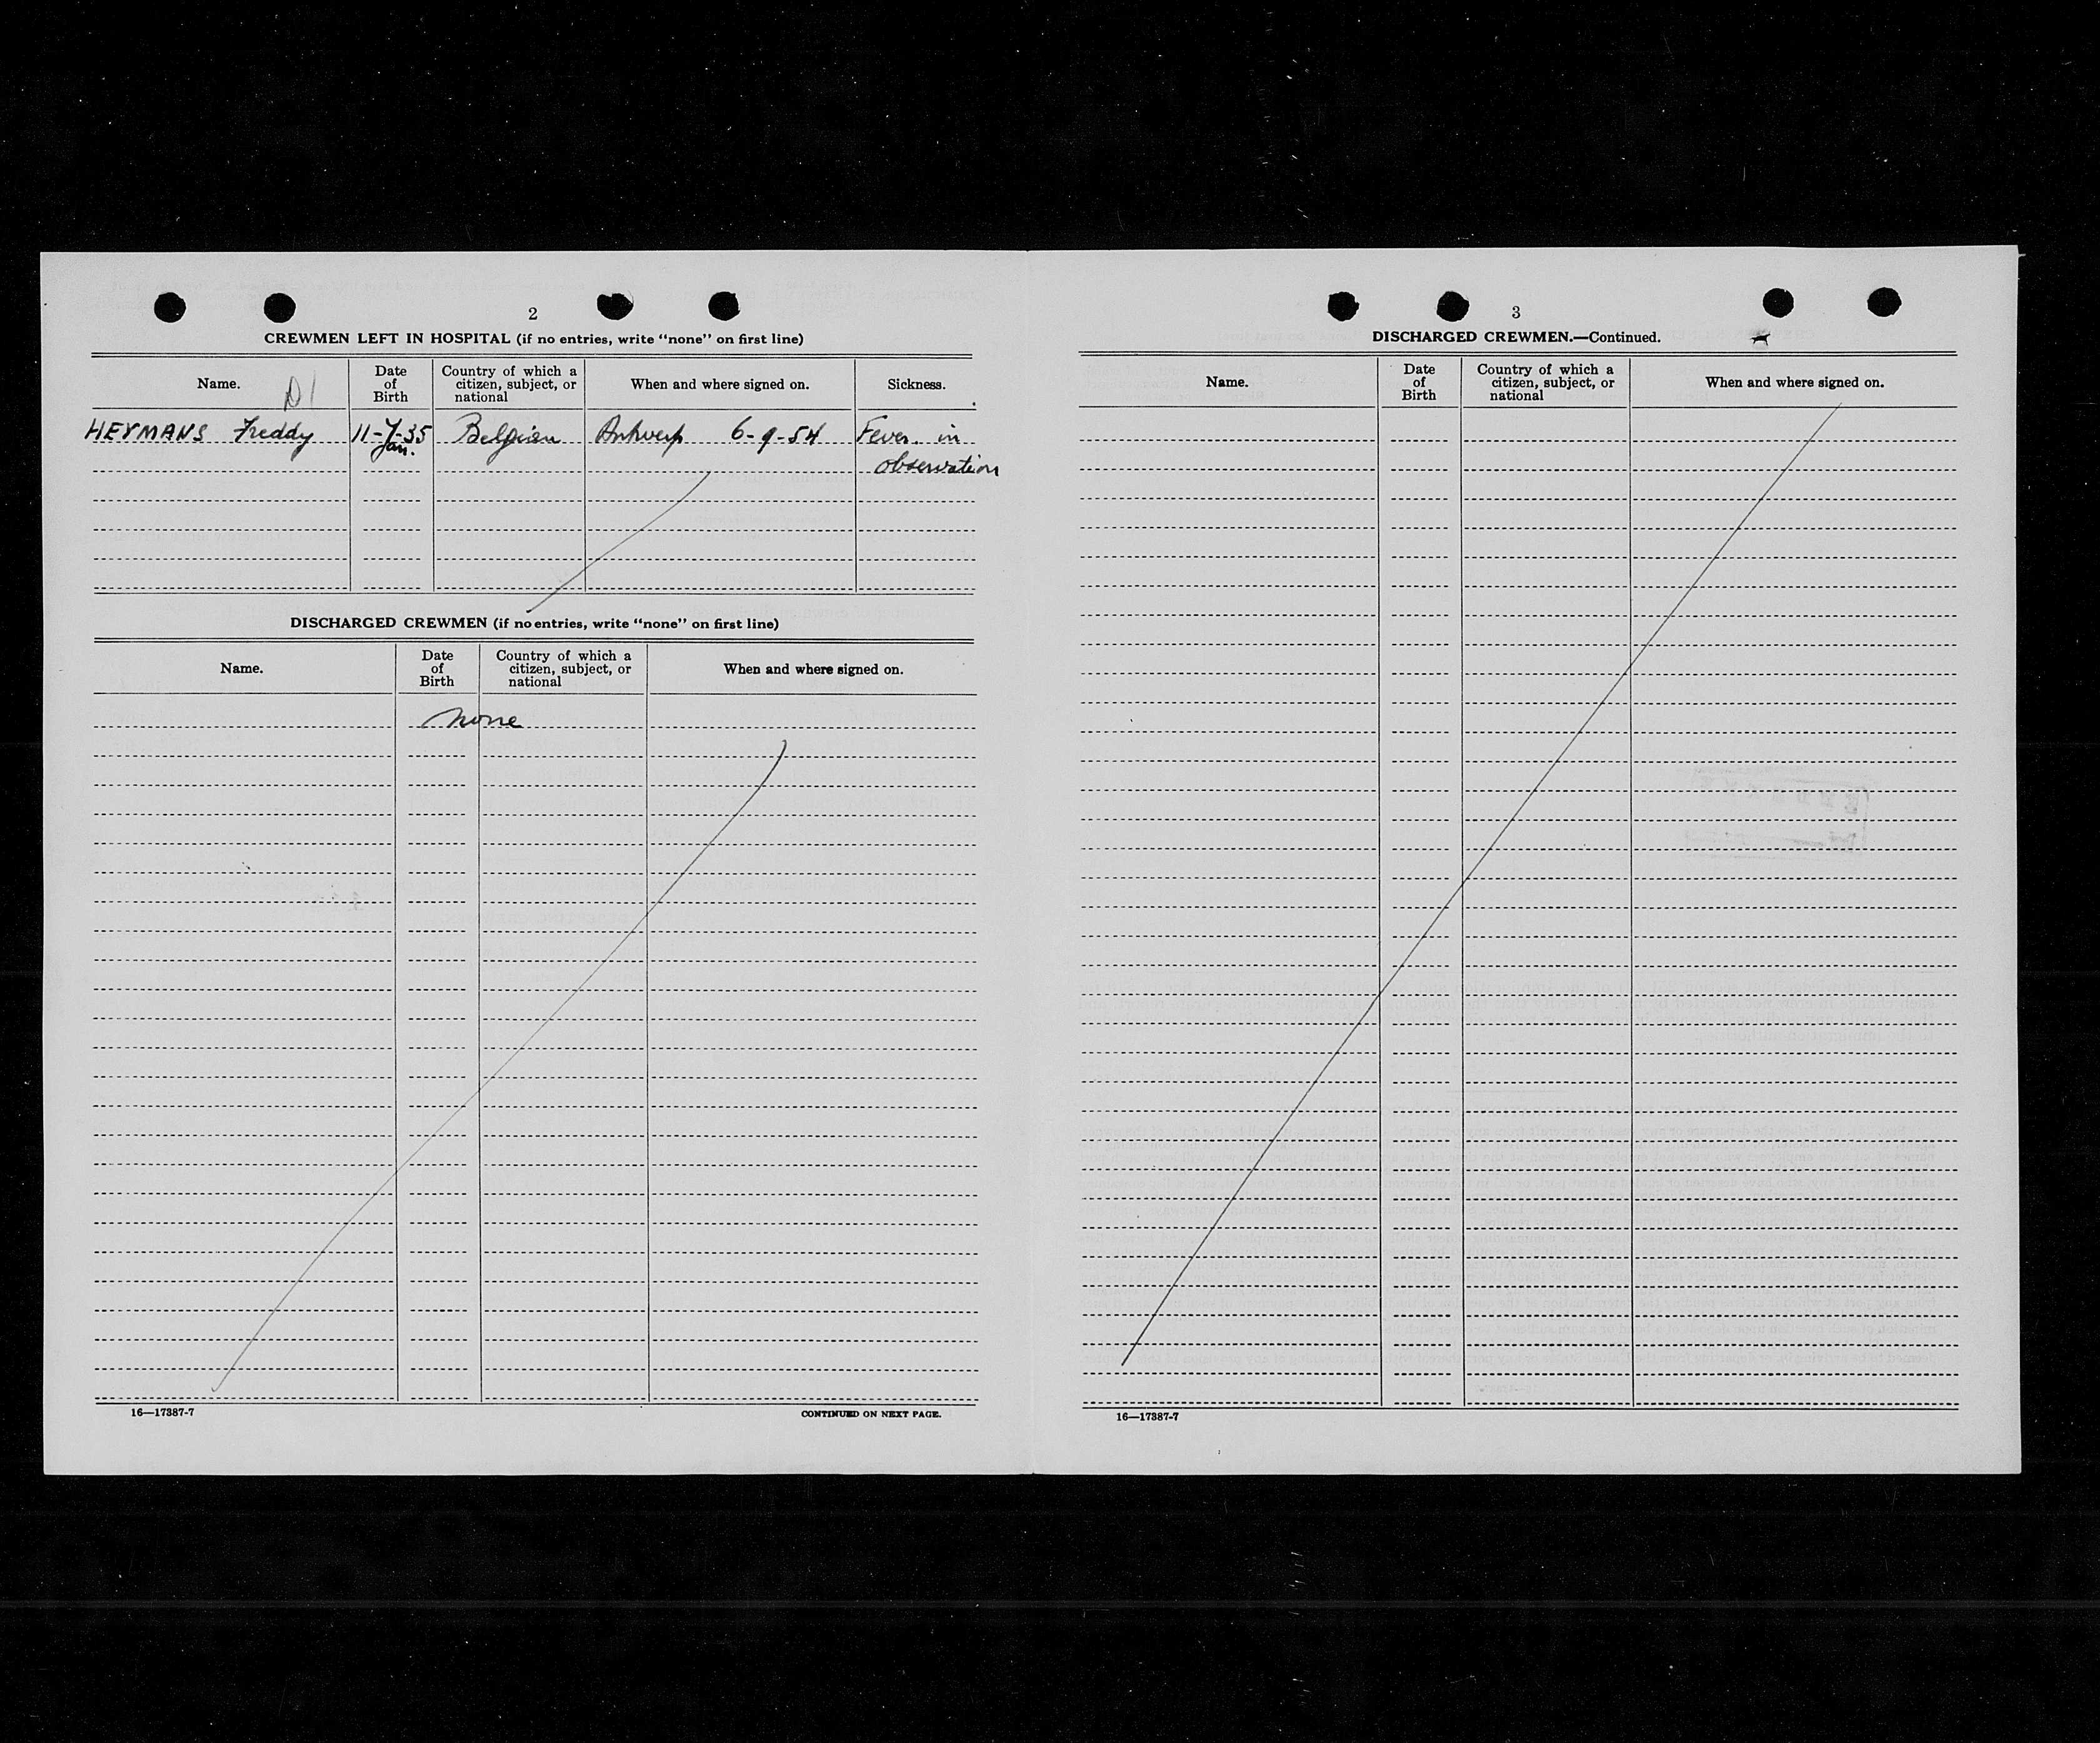 2
CREWMEN LEFT IN HOSPITAL (if no entries, write “none” on first line)
Name. D1
Date of Birth
Country of which a citizen, subject, or national
When and where signed on.
Sickness.
HEYMANS Freddy 11-7-35 Belgian Antwerp 6-9-54 Fever in
Jan. observation
DISCHARGED CREWMEN (if no entries, write “none” on first line)
Name.
Date of Birth
Country of which a citizen, subject, or national
When and where signed on.
none
16—17387-7 CONTINUED ON NEXT PAGE.
3
DISCHARGED CREWMEN.—Continued.
Name.
Date of Birth
Country of which a citizen, subject, or national
When and where signed on.
16—17387-7